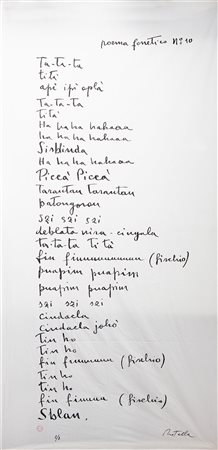 poema fonetico N° 10
Ta-ta-ta
tità
api ipi oplà
Ta-ta-ta
tità
Ha ha ha hahaaa
ha ha ha hahaaa
Sirbinda
Ha ha ha hahaaa
Piccà Piccà
Tarautau Tarautau
patongoron
szi szi szi
deblata nira-cingala
ta-ta-ta tità
fiu fiuuuuuuuuu (fischio)
puapim puapim
puapim puapim
szi szi szi
ciudacla
ciudacla johò
Tin ho
Tin ho
fiu fiuuuuu (fischio)
Tin ho
tin ho
fiu fiuuuu (fischio)
Sblan.
Rotella